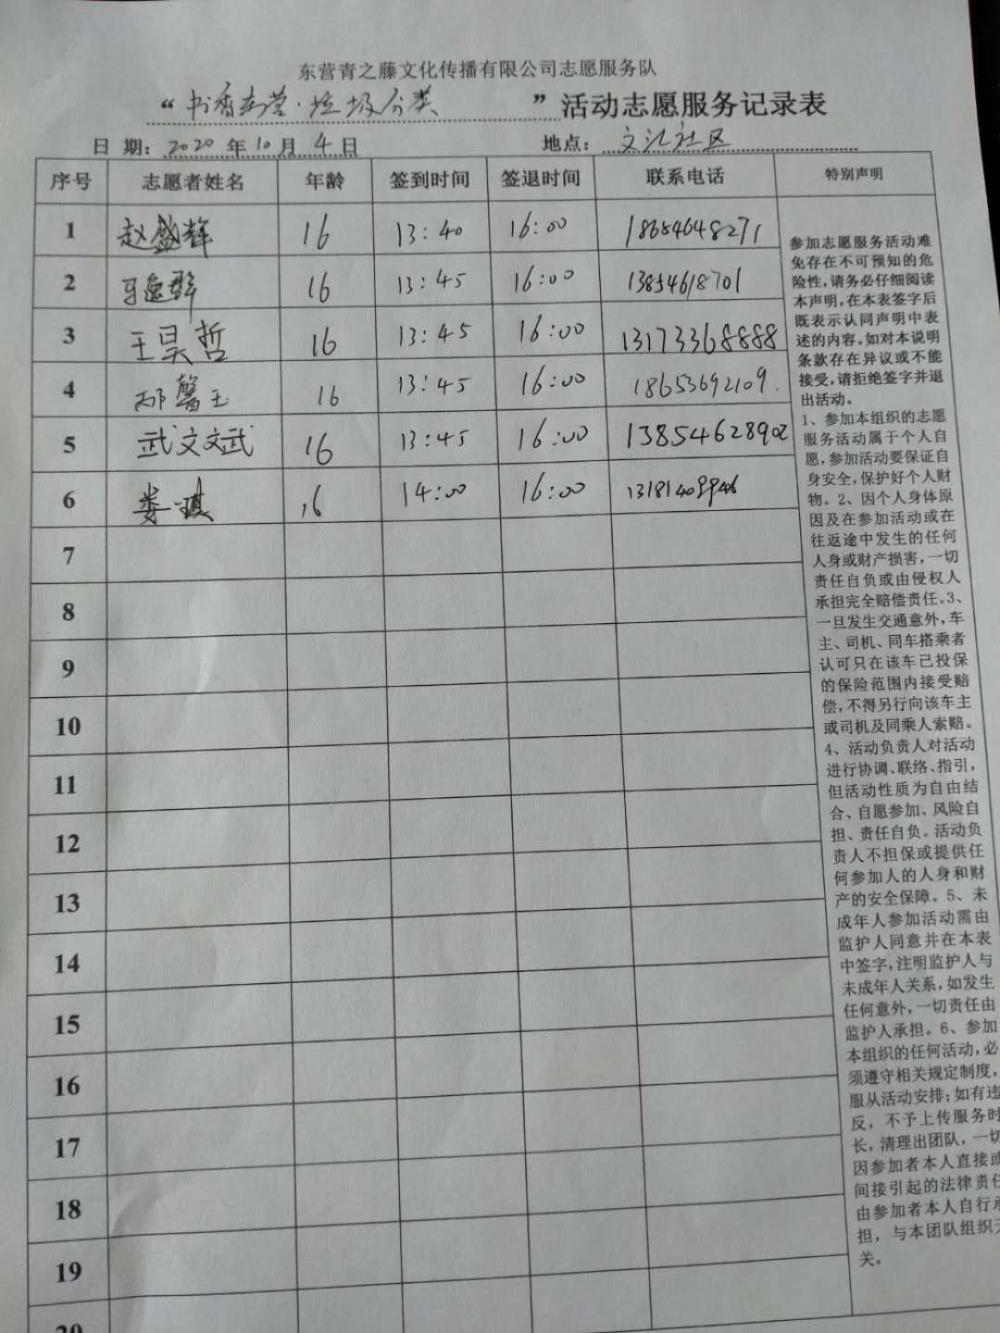 东营青之藤文化传播有限公司志愿服务队
“书香东营·垃圾分类”活动志愿服务记录表
日 期: 2020 年 10 月 4 日 地点: 文汇社区
序号 志愿者姓名 年龄 签到时间 签退时间 联系电话 特别声明
1 赵盛辉 16 13:40 16:00 18654648271
2 16 13:45 16:00 13854618701
3 王昊哲 16 13:45 16:00 13173368888
4 邴馨玉 16 13:45 16:00 18653692109
5 武文文武 16 13:45 16:00 13854628902
6 娄琪 16 14:00 16:00
7
8
9
10
11
12
13
14
15
16
17
18
19
20
参加志愿服务活动难
免存在不可预知的危
险性,请务必仔细阅读
本声明,在本表签字后
既表示认同声明中表
述的内容。如对本说明
条款存在异议或不能
接受,请拒绝签字并退
出活动。
1、参加本组织的志愿
服务活动属于个人自
愿,参加活动要保证自
身安全,保护好个人财
物。2、因个人身体原
因及在参加活动或在
往返途中发生的任何
人身或财产损害,一切
责任自负或由侵权人
承担完全赔偿责任。3、
一旦发生交通意外,车
主、司机、同车搭乘者
认可只在该车已投保
的保险范围内接受赔
偿,不得另行向该车主
或司机及同乘人索赔。
4、活动负责人对活动
进行协调、联络、指引,
但活动性质为自由结
合、自愿参加、风险自
担、责任自负。活动负
责人不担保或提供任
何参加人的人身和财
产的安全保障。5、未
成年人参加活动需由
监护人同意并在本表
中签字,注明监护人与
未成年人关系,如发生
任何意外,一切责任由
监护人承担。6、参加
本组织的任何活动,必
须遵守相关规定制度,
服从活动安排;如有违
反，不予上传服务时
长，清理出团队，一切
因参加者本人直接或
间接引起的法律责任
由参加者本人自行承
担，与本团队组织无
关。